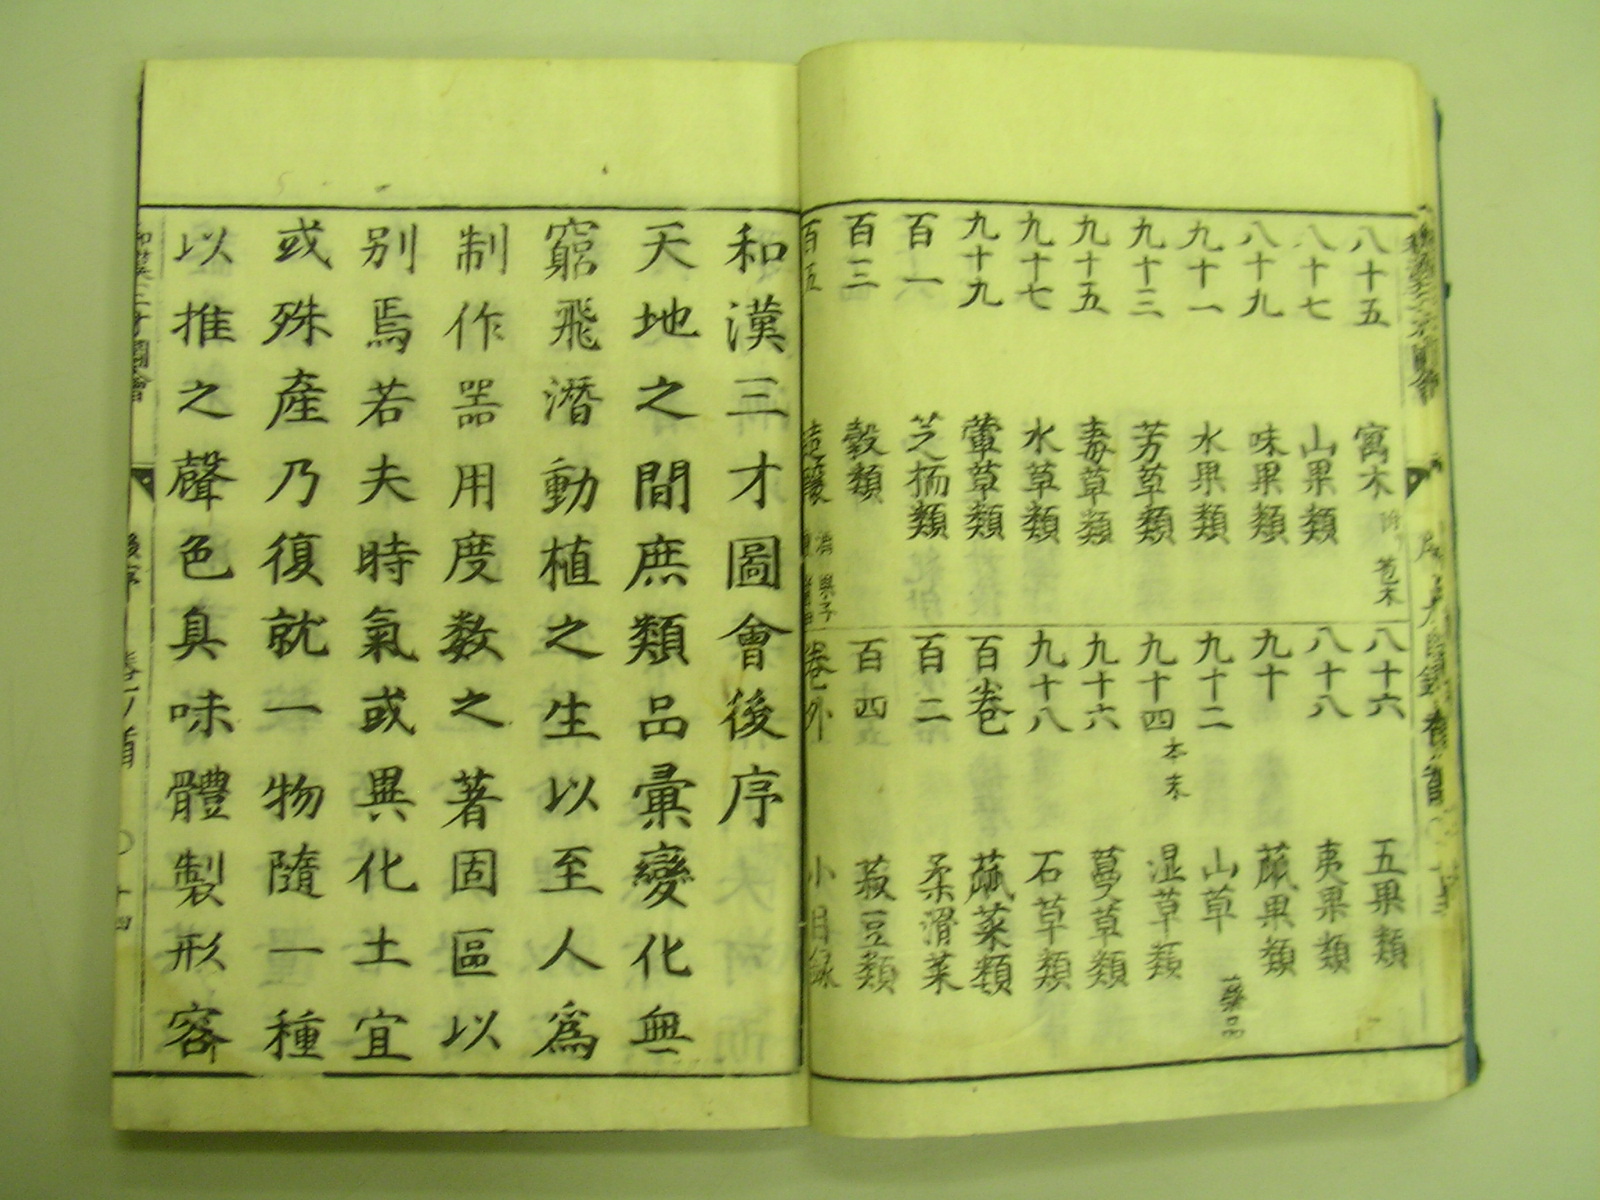 八十五 寓木 附 苞木
八十七 山果類
八十九 味果類
九十一 水果類
九十三 芳草類
九十五 毒草類
九十七 水草類
九十九 葷草類
百一 芝栭類
百三 穀類
百五 造釀
八十六 五果類
八十八 夷果類
九十 蓏果類
九十二 山草 藥品
九十四 本末 湿草類
九十六 蔓草類
九十八 石草類
百卷 蓏菜類
百二 柔滑菜
百四 菽豆類
卷外 小目録
和漢三才圖會後序
天地之間庶類品彙變化無
窮飛潛動植之生以至人爲
制作噐用度数之著固區以
别焉若夫時氣或異化土宜
或殊産乃復就一物隨一種
以推之聲色具味體製形容
和漢三才圖會 後序 卷ノ首 〇 十四